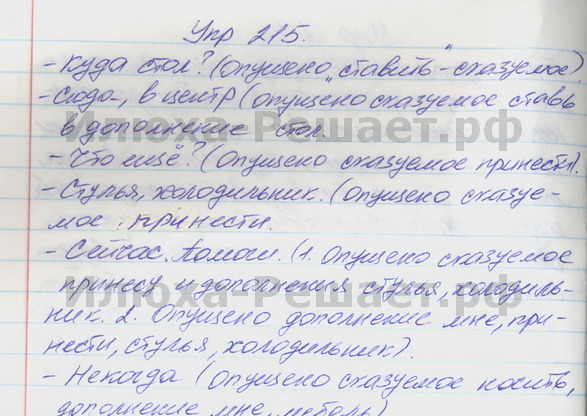 Упр 215.
- Куда стол? (опущено "ставить" - сказуемое).
- Сюда, в центр (опущено сказуемое ставь
в дополнение стол.
Илюха-Решает.рф
- Что ещё? (Опущено сказуемое принести).
- Стулья, холодильник. (Опущено сказуе-
мое принести.
- Сейчас. Помоги. (1. Опущено сказуемое
принесу и дополнения стулья, холодиль-
Илюха-Решает.рф
ник. 2. Опущено дополнение мне, при-
нести, стулья, холодильник).
- Некогда (опущено сказуемое носить,
дополнение мне, мебель)